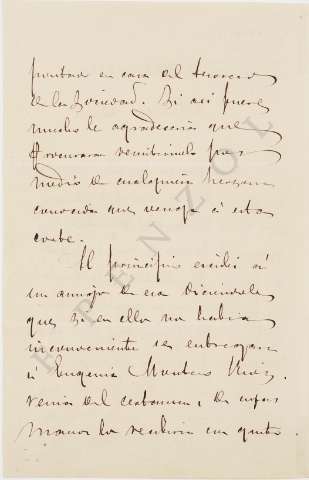 puntad en casa del tesorero
de la Sociedad. Si así fuere
mucho le agradecería que
procurara remitírmelo por
medio de cualquiera persona
conocida que venga á esta
corte.
Al principio escribí á
un amigo de esa diciendole
que si en ello no había
inconveniente se entregara
á Eugenio Montero Ríos.
venía del
manos lo recibiría con gusto.
F PENZOL